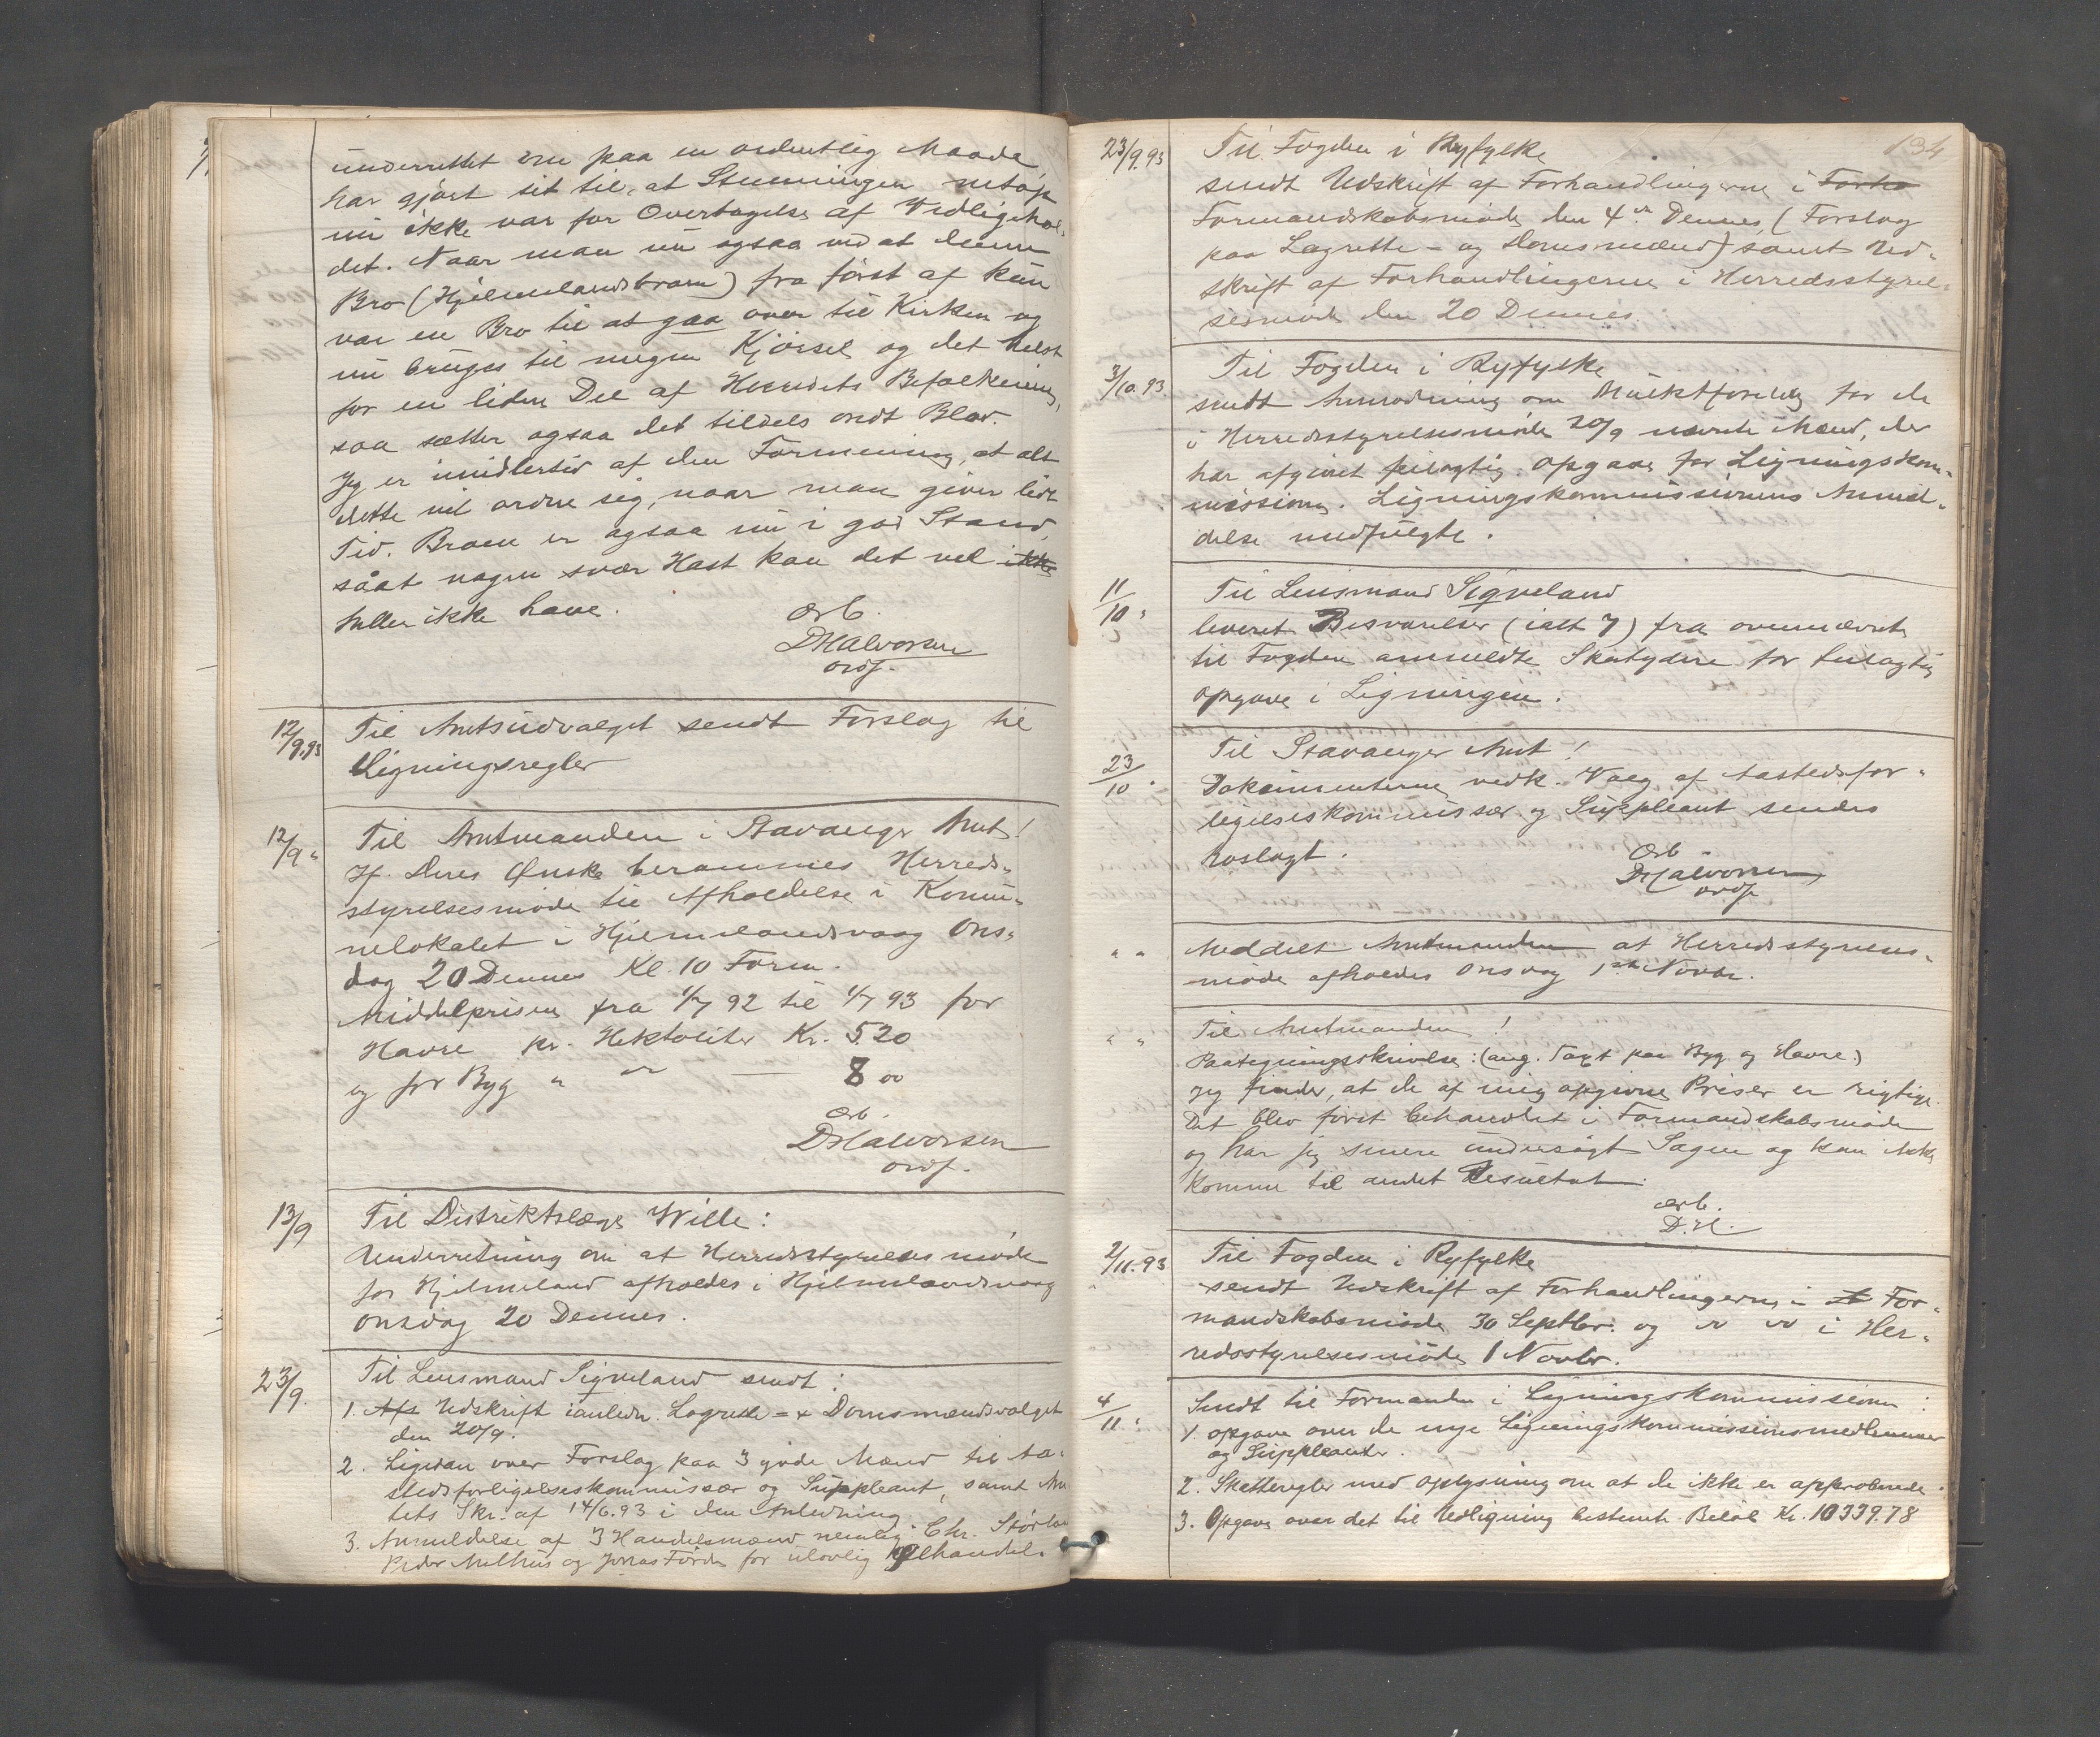 underrettet om paa en ordentlig Maade
har gjört sit til, at Stemningen netop
nu ikke var for Overtagelse af Vedligehol-
det. Naar man nu ogsaa ved at denne
Bro (Hjelmelandsbroen) fra först af kun
var en Bro til at gaa over til Kirken og
nu bruges til megen Kjörsel og det helst
for en liden Del af Herredets Befolkning,
saa sætter ogsaa det tildels ondt Blod.
Jeg er imidlertid af den Formening, at alt
dette vil ordne sig, naar man giver lidt
Tid. Broen er ogsaa nu i god Stand,
såat nogen svær Hast kan det vel ikke
heller ikke have.
Ærb.
DHalvorsen
ordf.
12/9.93
Til Amtsudvalget sendt Forslag til
Ligningsregler
12/9 "
Til Amtmanden i Stavanger Amt!
If. Deres Ønske berammes Herreds-
styrelsesmöde til Afholdelse i Kommu-
nelokalet i Hjelmelandsvaag Ons-
dag 20 Dennes Kl. 10 Form.
Middelprisen fra 1/7 92 til 1/7 93 for
Havre pr. Hektoliter Kr. 5.20
og for Byg " " — 8 00
Ærb.
DHalvorsen
ordf.
13/9
Til Distriktslæge Wille:
Underretning om at Herredsstyrelsesmöde
for Hjelmeland afholdes i Hjelmelandsvaag
onsdag 20 Dennes.
23/9.
Til Lensmand Sigveland sendt:
1. Afs Udskrift ianledn. Lagrette = & Domsmændsvalget
den 20/9.
2. Ligedan over Forslag paa 3 gode Mænd til Aa-
stedsforligelseskommissær og Suppleant, samt Am
tets Skr. af 14/6.93 i den Anledning.
3. Anmeldelse af 3 Handelsmænd nemlig Chr.
Peder Melhus og Jonas Förde for ulovlig Ølhandel.
134
23/9.93
Til Fogden i Ryfylke
sendt Udskrift af Forhandlingerne i Forha
Formandskabsmöde den 4de Dennes, (Forslag
paa Lagrette- og Domsmænd) samt Ud-
skrift af Forhandlingerne i Herredsstyrel-
sesmöde den 20 Dennes.
3/10.93.
Til Fogden i Ryfylke
sendt Anmodning om Mulktforelæg for de
i Herredsstyrelsesmöde 20/9 nævnte Mænd, der
har afgivet feilagtig Opgave for Ligningskom-
missionen. Ligningskommissionens Anmel-
delse medfulgte.
11/10 "
Til Lensmand Sigveland
leveret Besvarelser (ialt 7) fra ovennævnte
til Fogden anmeldte Skatydere for feilagtig
opgave i Ligningen.
23/10 "
Til Stavanger Amt!
Dokumenterne vedk. Valg af Aastedsfor-
ligelseskommissær og Suppleant sendes
voslagt.
Ærb
DHalvorsen
ordf.
" "
Meddelt Amtmanden at Herredsstyrelses-
möde afholdes Onsdag 1ste Novbr.
" "
Til Amtmanden!
Paategningsskrivelse: (ang. Taxt paa Byg og Havre.)
Jeg finder, at de af mig opgivne Priser er rigtige.
Det blev först behandlet i Formandskabsmöde
og har jeg senere undersögt Sagen og kan ikke
komme til andet Resultat.
Ærb.
D.H.
2/11.93
Til Fogden i Ryfylke
sendt Udskrift af Forhandlingerne i For-
mandskabsmöde 30 Septbr. og " " i Her-
redsstyrelsesmöde 1 Novbr.
4/11 "
Sendt til Formanden i Ligningskommissionen:
1. opgave over de nye Ligningskommissionsmedlemmer
og Suppleanter.
2. Skatteregler med oplysning om at de ikke er approberede.
3. Opgave over det til Udligning bestemte Belöb Kr. 10339.78